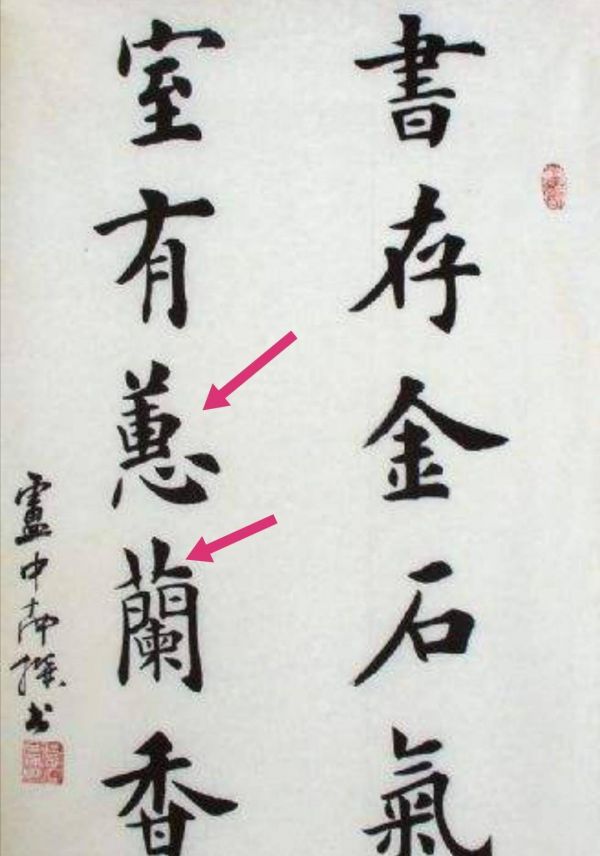 書存金石氣
室有蕙蘭香
盧中南撰書